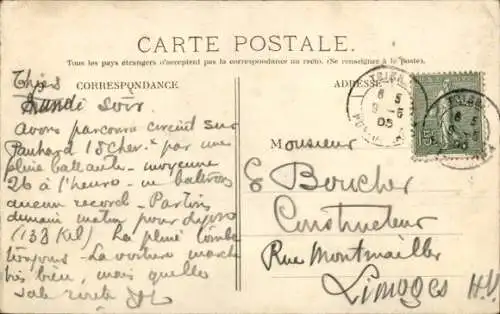 CARTE POSTALE.
Tous les pays étrangers n'acceptent pas la correspondance au recto. (Se renseigner à la poste.)
CORRESPONDANCE
ADRESSE
Thiers
Lundi Soir
Avons parcouru circuit sur
Panhard 18 chex par une
pluie battante - moyenne
26 à l'heure - ne battrons
aucun record - Partons
demain matin pour
(133 Kil) La pluie tombe
toujours - La voiture marche
très bien, mais quelle
sale route
Monsieur
E Boucher
Constructeur
Rue Montmailler
Limoges H.V.
THIERS
8 5
9 - 5
05
15c